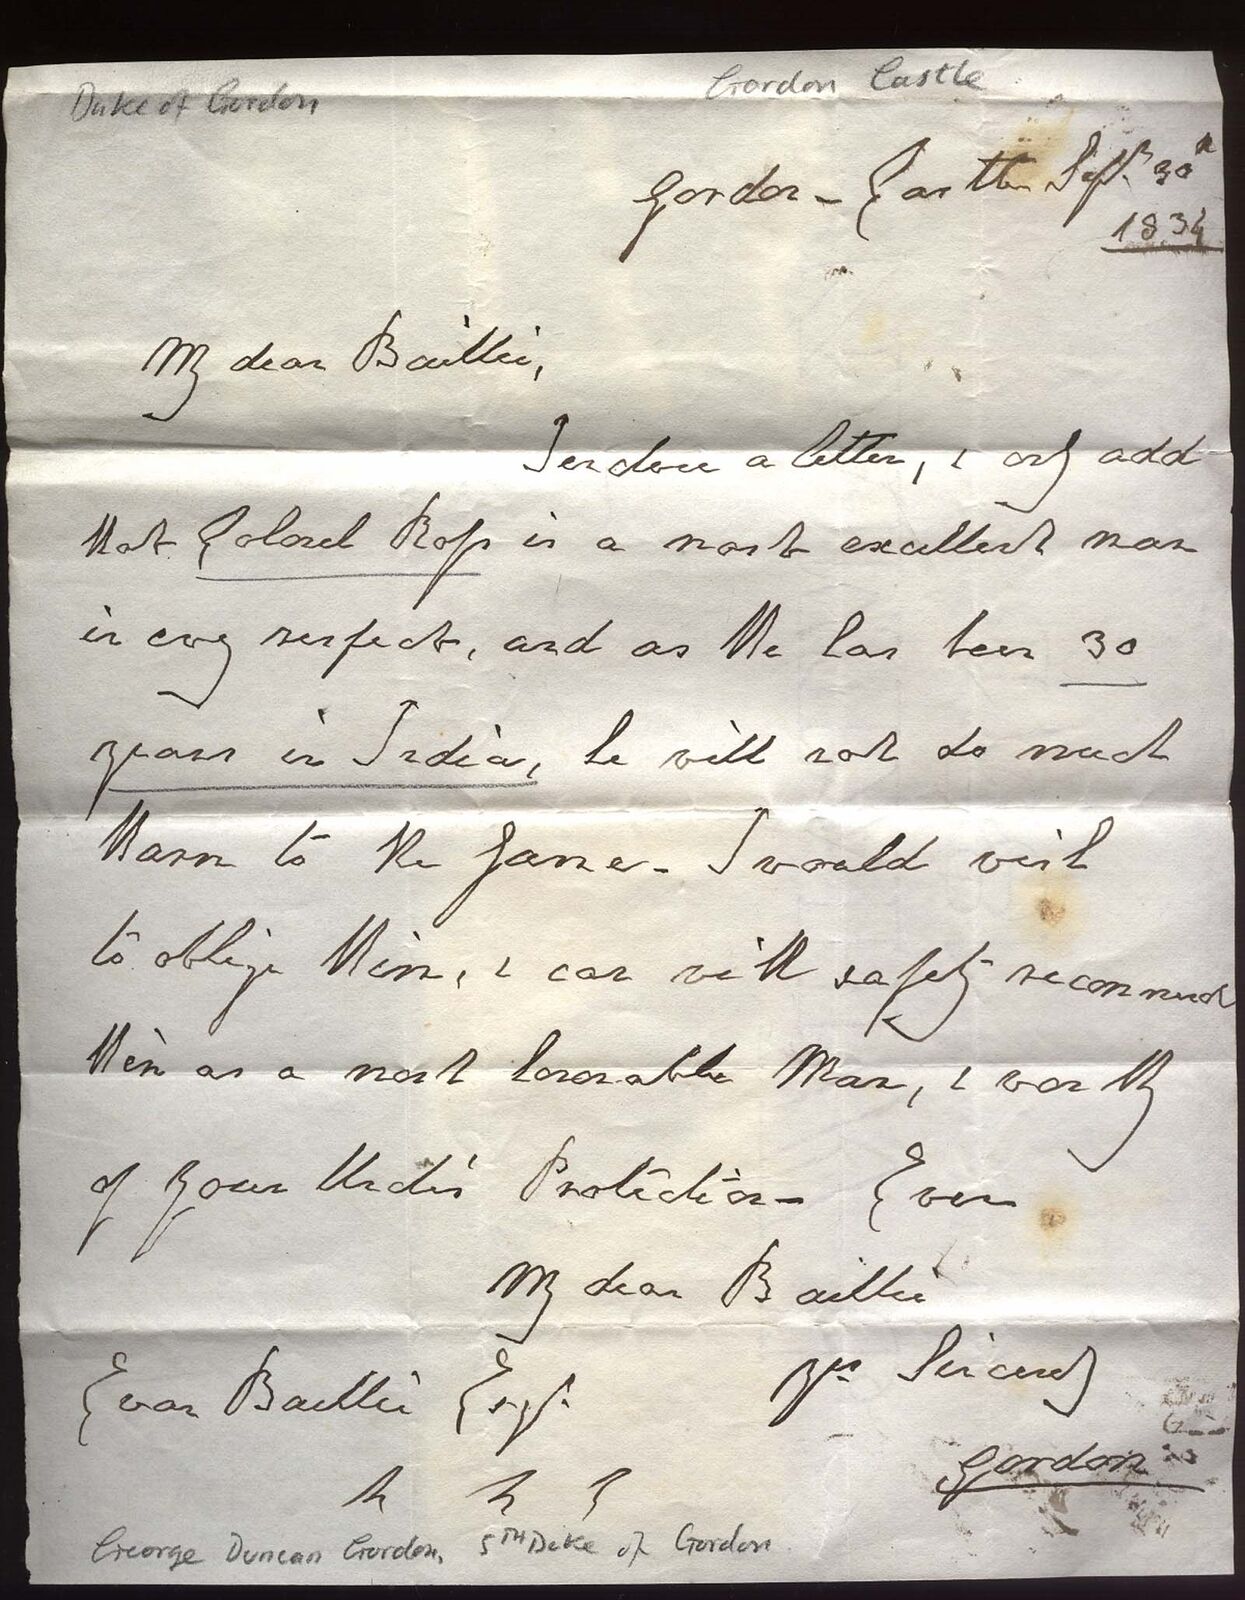 Duke of Gordon
Gordon Castle
Gordon-Castle Sept. 30th
1834
My dear Baillie,
I enclose a letter, & only add
that Colonel Ross is a most excellent man
in evey respect, and as the has been 30
years in India, he will not do much
Harm to the Game - I would wish
to oblige Him, & can with safety recommend
Him as a most honorable Man, & worthy
of your kind Protection - Ever
My dear Baillie
yrs Sincerely
Evan Baillie Esqr.
Gordon
George Duncan Gordon, 5TH Duke of Gordon